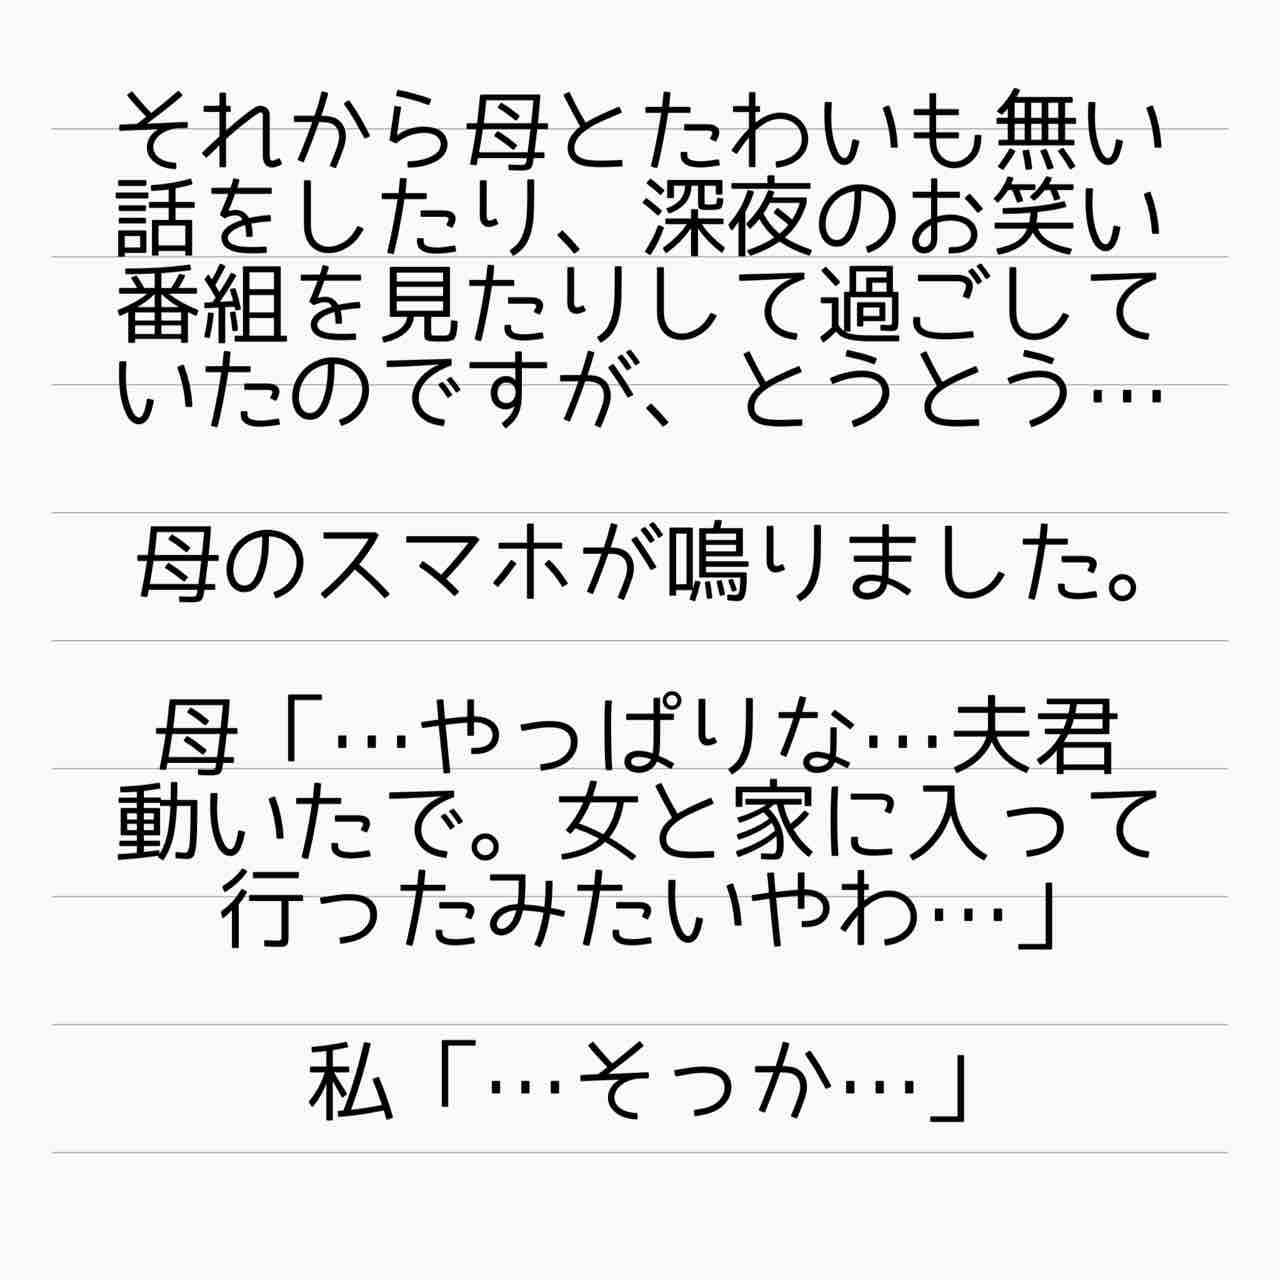 それから母とたわいも無い
話をしたり、深夜のお笑い
番組を見たりして過ごして
いたのですが、とうとう…
母のスマホが鳴りました。
母「…やっぱりな…夫君
動いたで。女と家に入って
行ったみたいやわ…」
私「…そっか…」